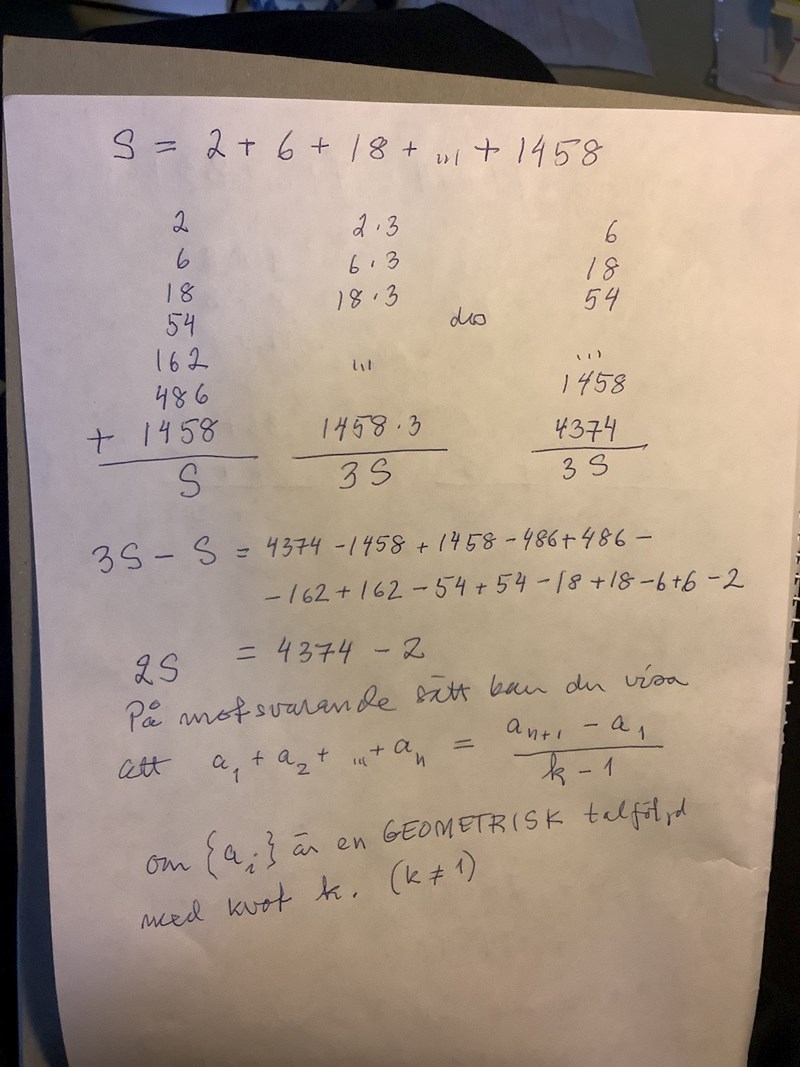 S = 2 + 6 + 18 + ... + 1458
2 2·3 6
6 6·3 18
18 18·3 54
54 dvs
162 ... ...
486 1458
+ 1458 1458·3 4374
S 3S 3S
3S - S = 4374 - 1458 + 1458 - 486 + 486 -
- 162 + 162 - 54 + 54 - 18 + 18 - 6 + 6 - 2
2S = 4374 - 2
På motsvarande sätt kan du visa
att a₁ + a₂ + ... + aₙ = (aₙ₊₁ - a₁) / (k - 1)
om {aᵢ} är en GEOMETRISK talföljd
med kvot k. (k ≠ 1)